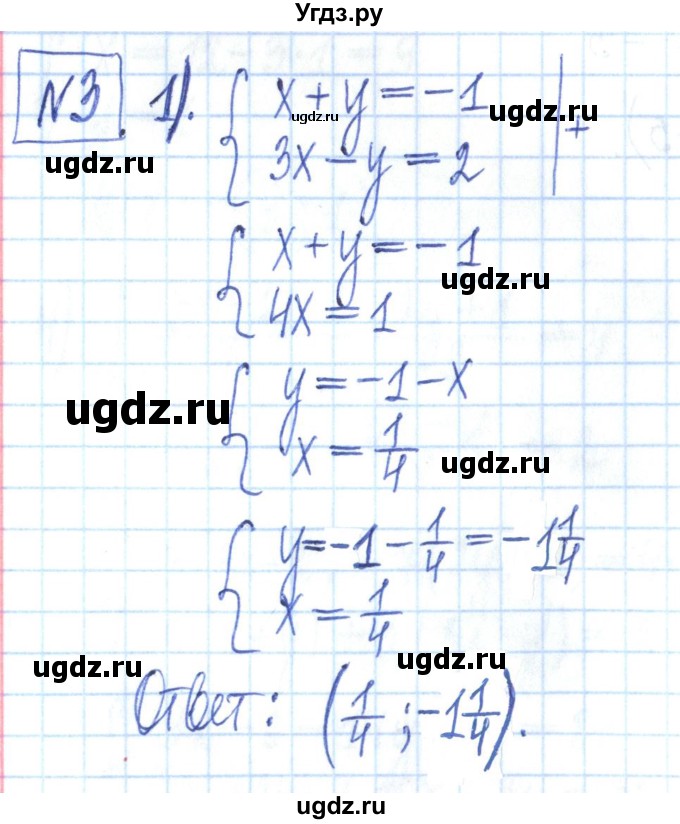 Угдз.ру
№3. 1). { x + y = -1 | +
ugdz.ru ugdz.ru ugdz.ru
3x - y = 2
{ x + y = -1
ugdz.ru
4x = 1
{ y = -1 - x
ugdz.ru
x = 1/4
ugdz.ru
{ y = -1 - 1/4 = -1 1/4
x = 1/4
ugdz.ru ugdz.ru
Ответ: (1/4 ; -1 1/4).
ugdz.ru